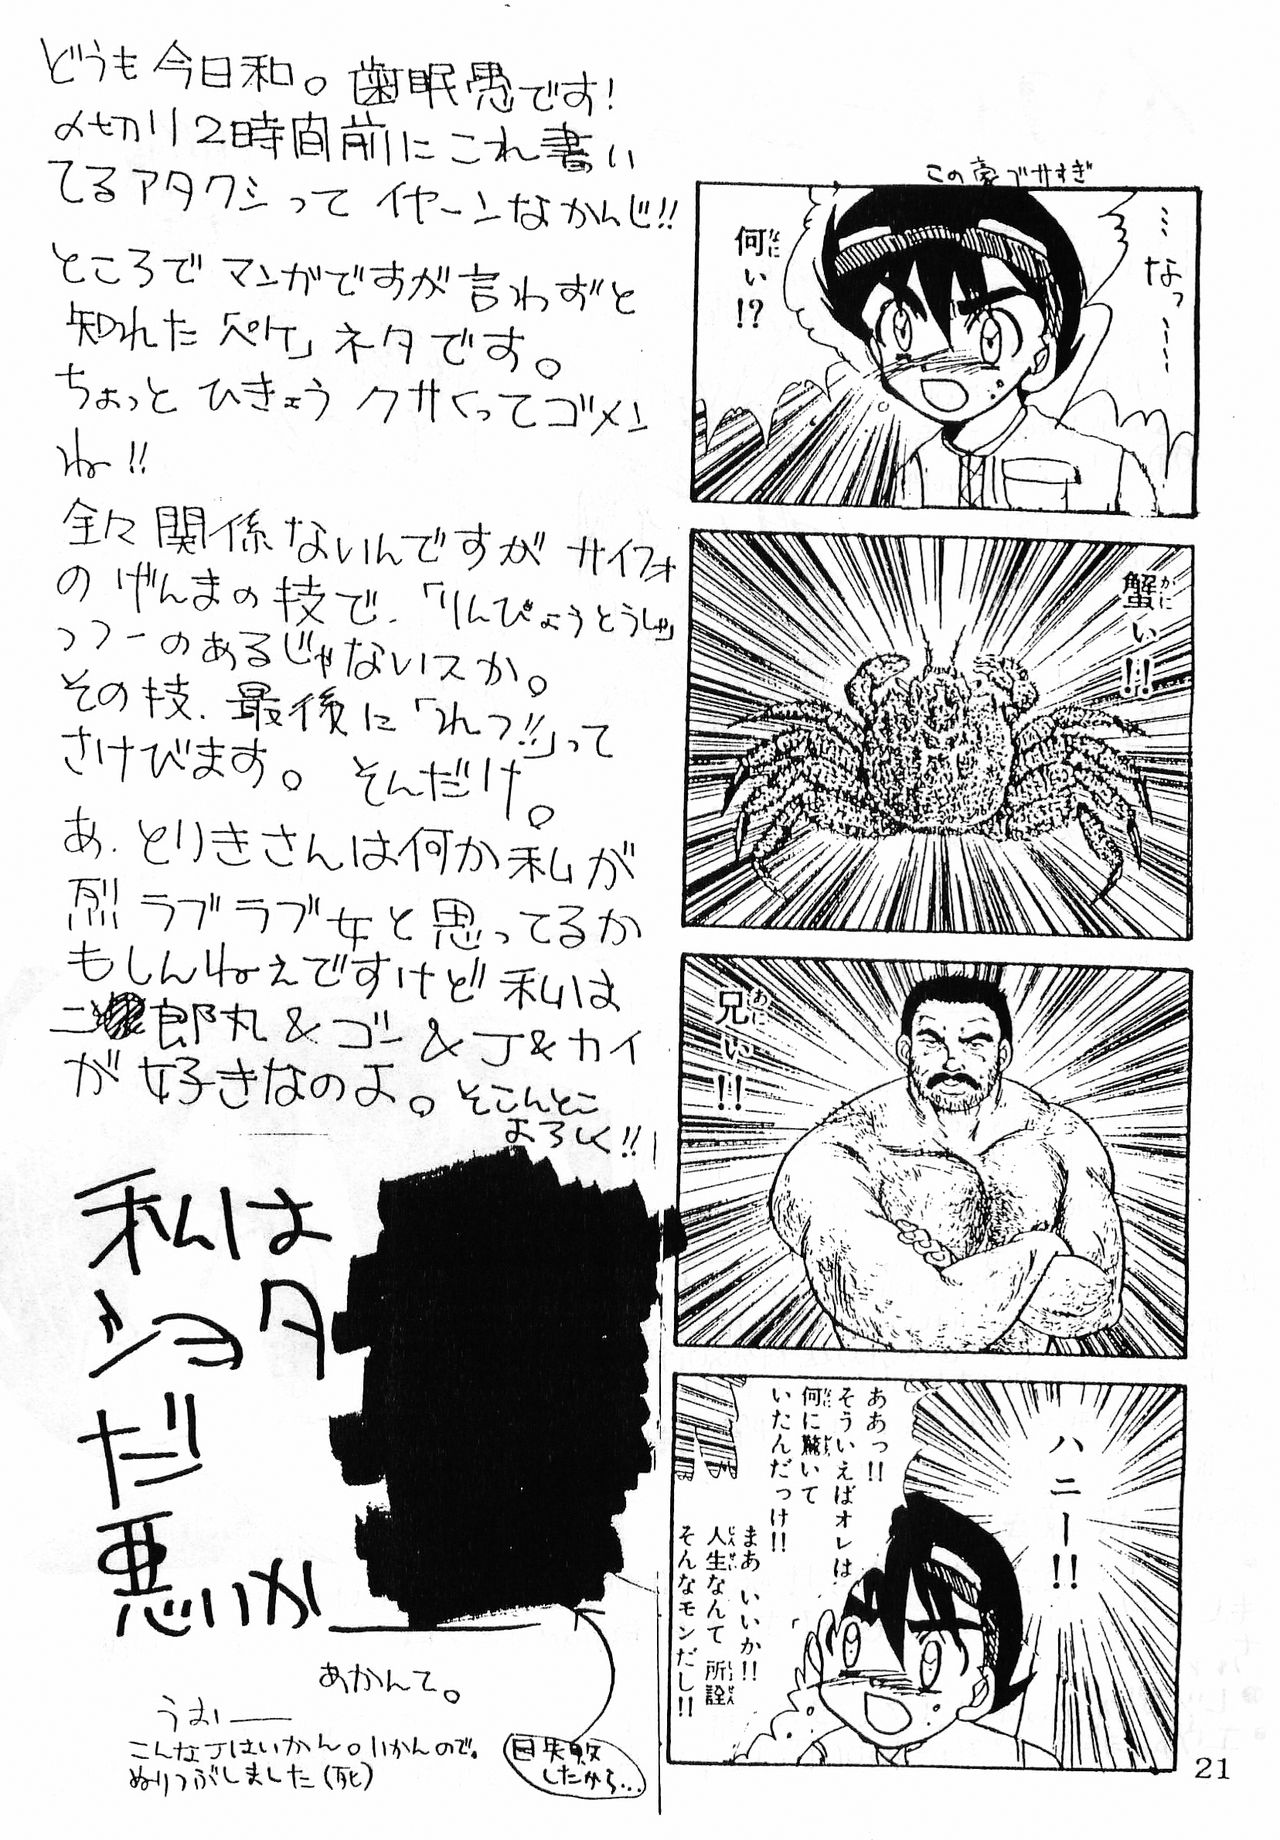 どうも今日和。歯眠愚です!
〆切り2時間前にこれ書い
てるアタクシって イヤーンなかんじ!!
ところで マンガですが言わずと
知れた「ペケ」ネタです。
ちょっと ひきょう クサくってゴメン
ね!!
全々関係ないんですが サイフォ
の げんまの技で、「りんぴょうとうしゃ」
っつーのあるじゃないスか。
その技、最後に「れつ!!」って
さけびます。 そんだけ。
あ、とりきさんは何か私が
烈ラブラブ女と思ってるか
もしんねぇですけど 私は
二郎丸&ゴン&J&カイ
が好きなのよ。そこんとこ
よろしく!!
私は
ショタ
だ
悪いか
あかんて。
うおー
こんなJはいかん。いかんので。
ぬりつぶしました(死)
目失敗
したから…
この豪ブサすぎ
…なっ
何ぃ!?
蟹ぃ!!
兄ぃ!!
ハニー!!
ああっ!!
そういえばオレは
何に驚いて
いたんだっけ!!
まあ いいか!!
人生なんて 所詮
そんなモンだし!!
21